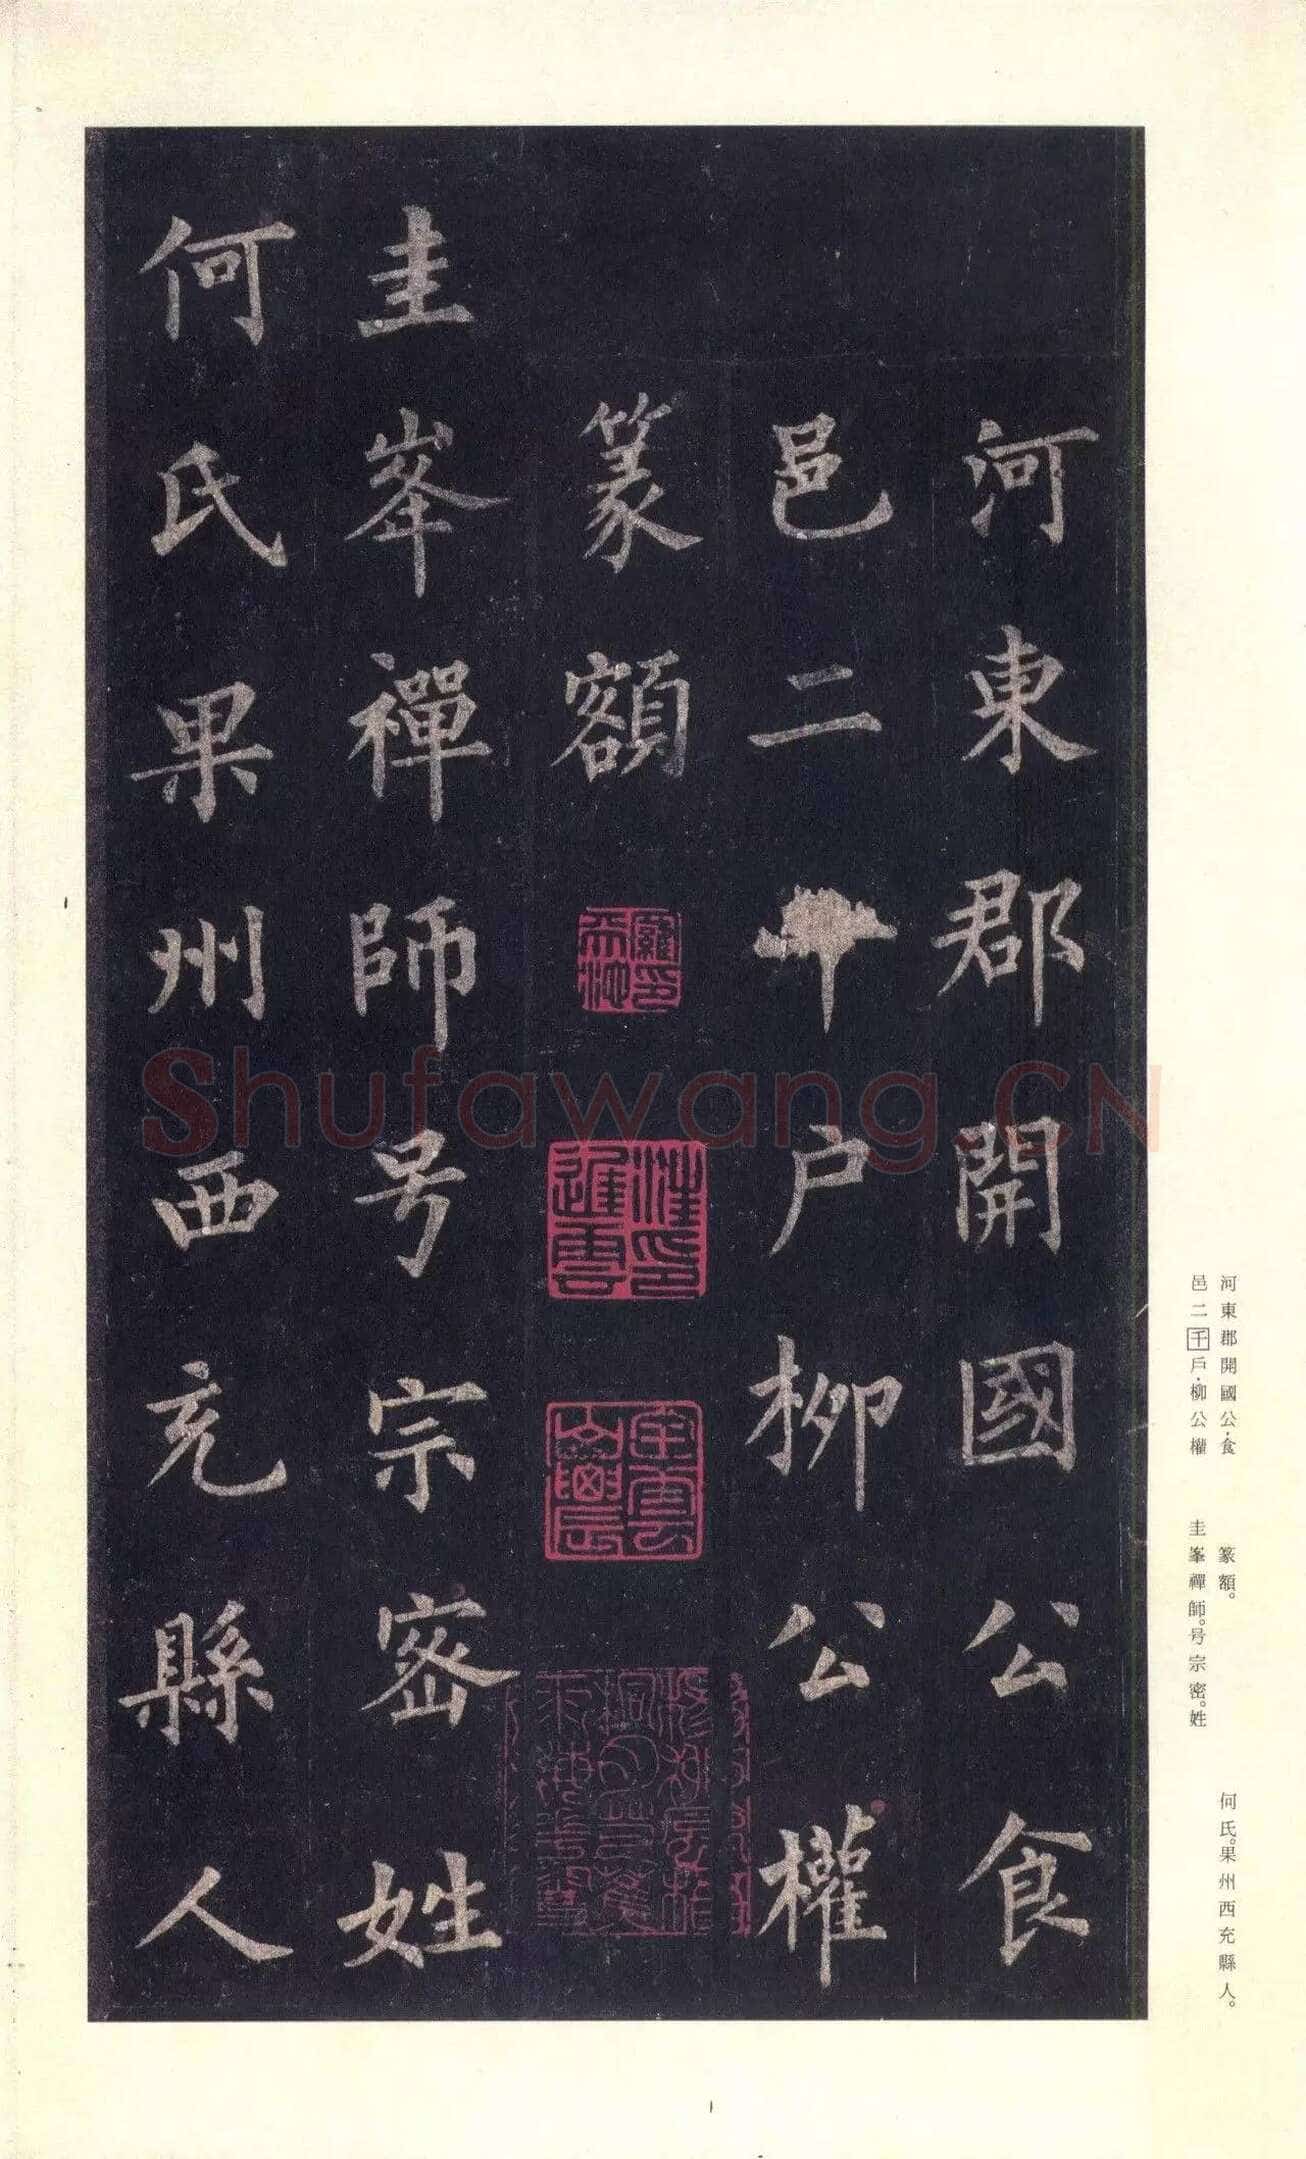 河東郡開國公食
邑二千戶柳公權
篆額
圭峯禪師号宗密姓
何氏果州西充縣人
Shufawang.CN
河東郡開國公·食
邑二千戶·柳公權
篆額。
圭峯禪師。号宗密。姓
何氏。果州西充縣人。